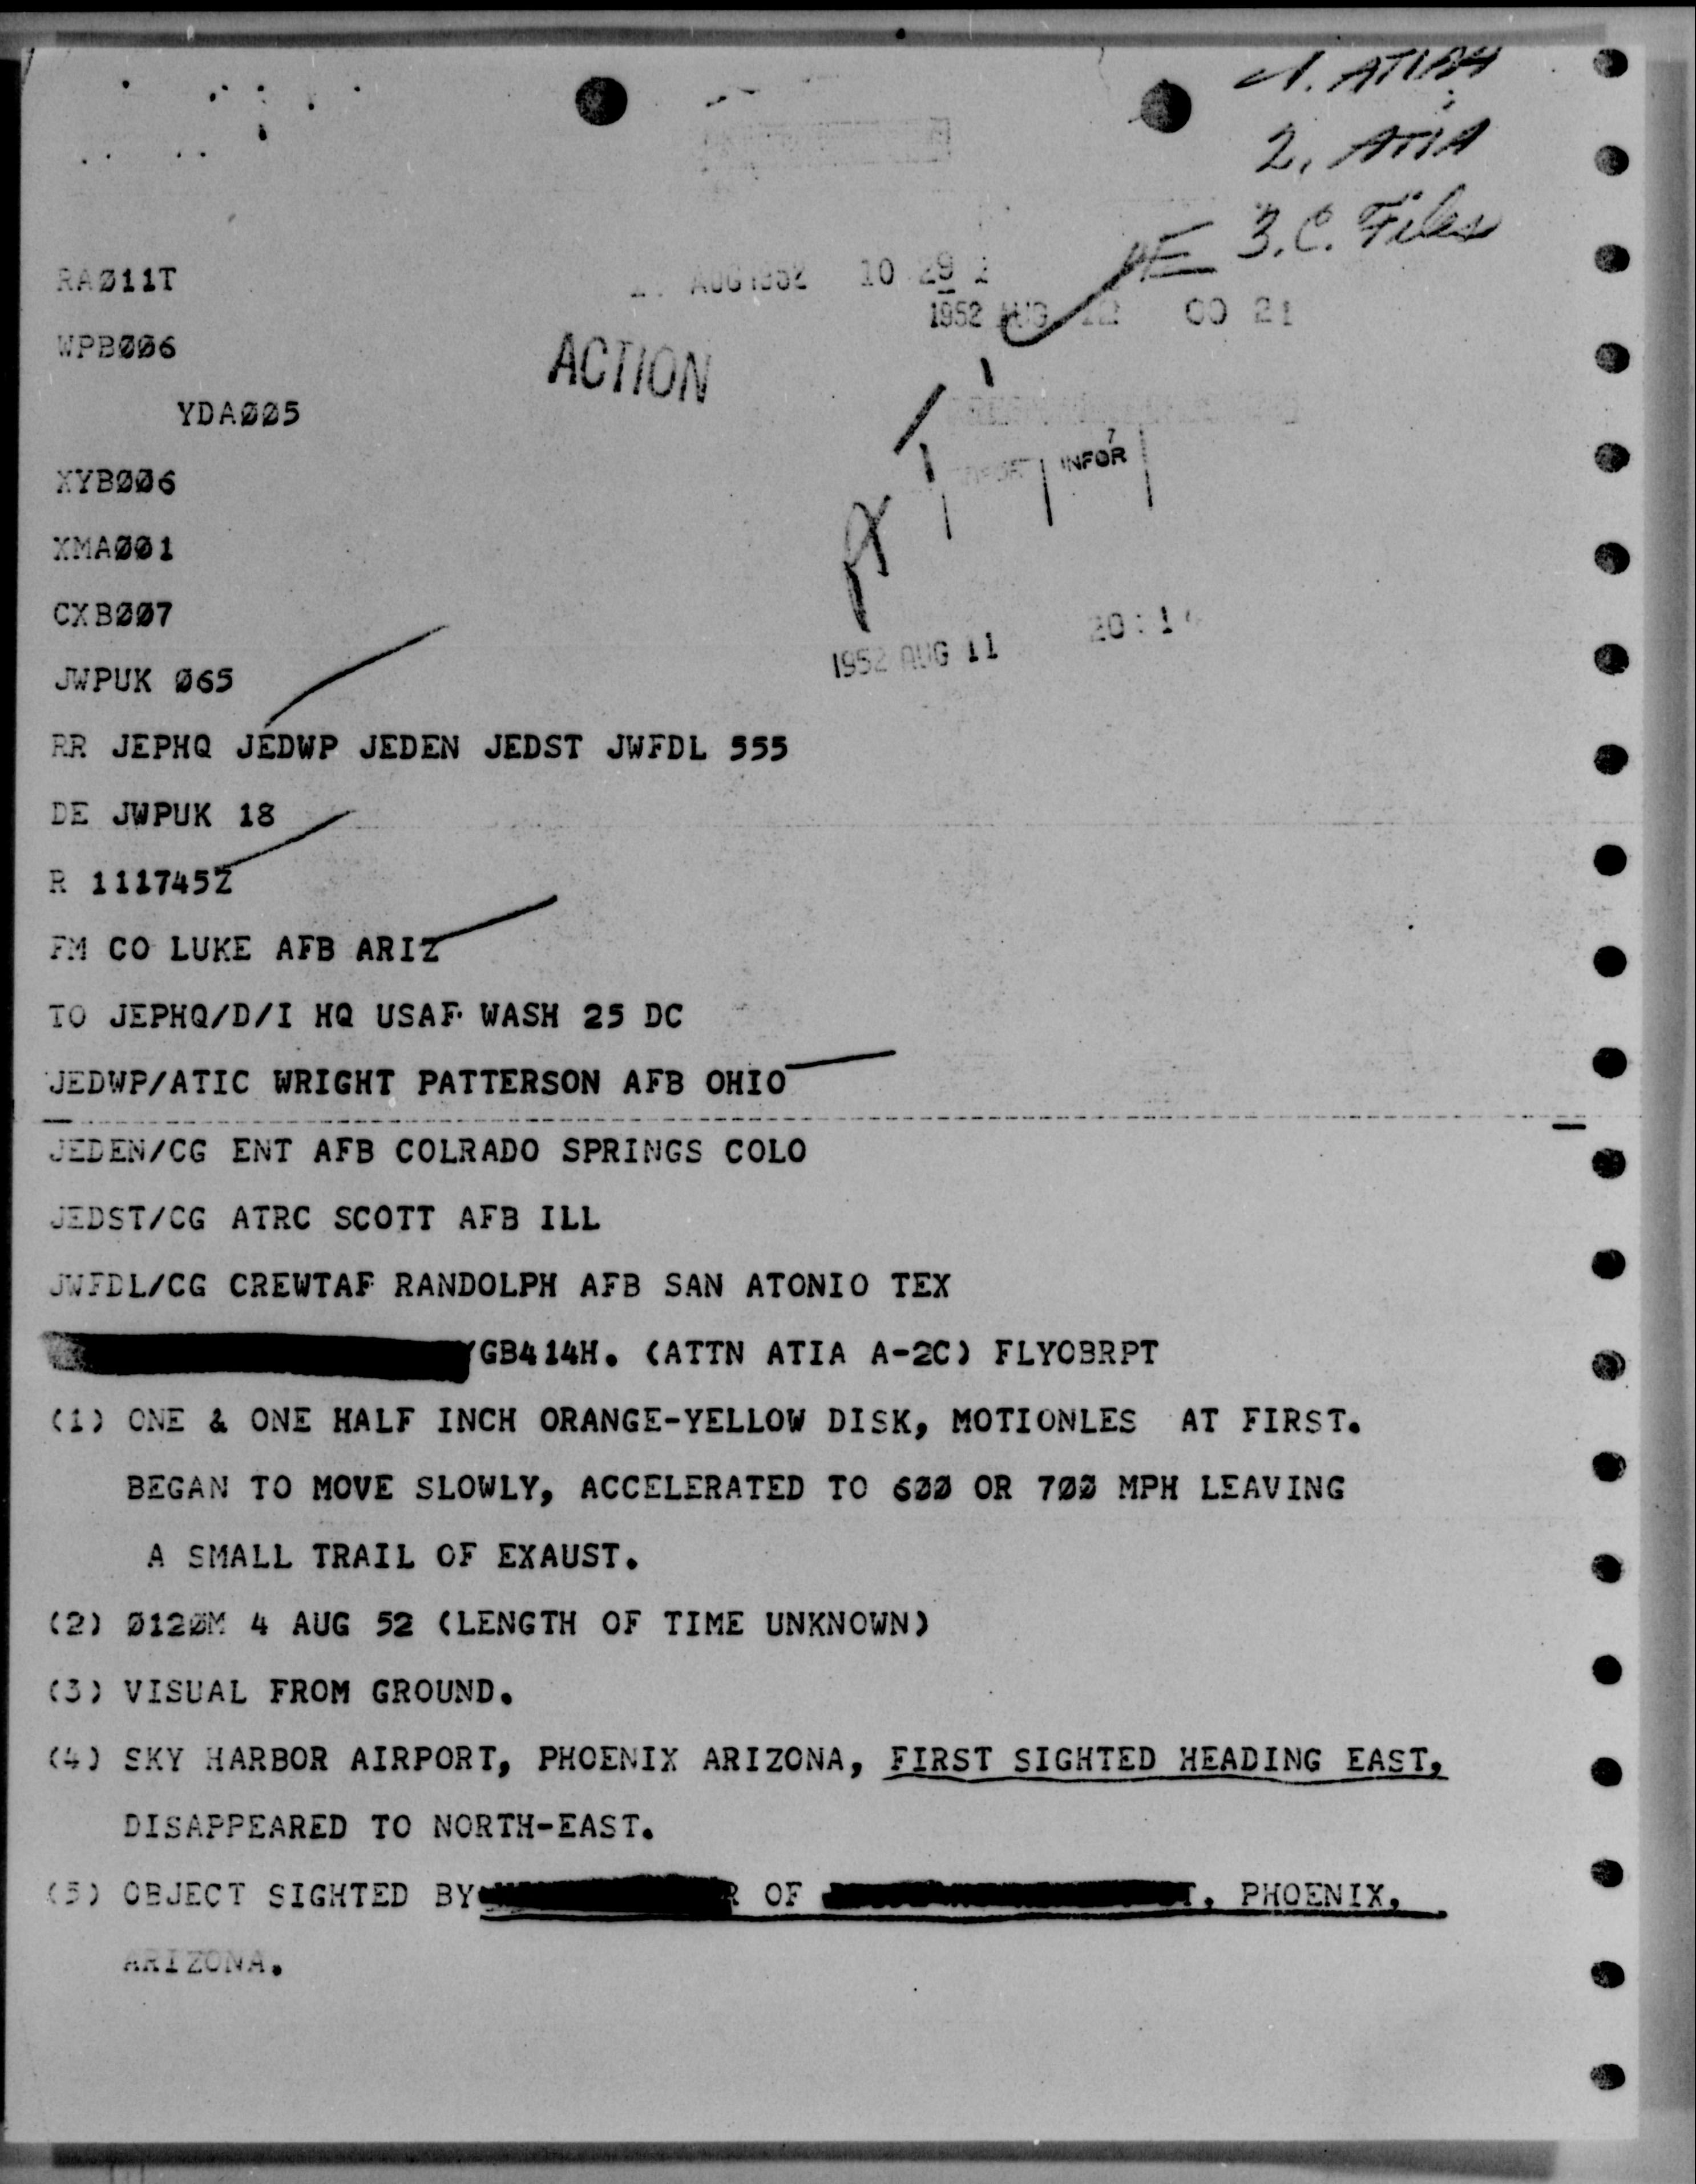 1. ATIAA
2. ATIA
3. C. Files
RAØ11T
AUG 1952 10 29
1952 AUG 12 00 21
WPBØØ6
ACTION
YDAØØ5
INFOR
XYBØØ6
XMAØØ1
CXBØØ7
1952 AUG 11 20:1
JWPUK Ø65
RR JEPHQ JEDWP JEDEN JEDST JWFDL 555
DE JWPUK 18
R 111745Z
FM CO LUKE AFB ARIZ
TO JEPHQ/D/I HQ USAF WASH 25 DC
JEDWP/ATIC WRIGHT PATTERSON AFB OHIO
JEDEN/CG ENT AFB COLRADO SPRINGS COLO
JEDST/CG ATRC SCOTT AFB ILL
JWFDL/CG CREWTAF RANDOLPH AFB SAN ATONIO TEX
/GB414H. (ATTN ATIA A-2C) FLYOBRPT
(1) ONE & ONE HALF INCH ORANGE-YELLOW DISK, MOTIONLES AT FIRST.
BEGAN TO MOVE SLOWLY, ACCELERATED TO 6ØØ OR 7ØØ MPH LEAVING
A SMALL TRAIL OF EXAUST.
(2) Ø12ØM 4 AUG 52 (LENGTH OF TIME UNKNOWN)
(3) VISUAL FROM GROUND.
(4) SKY HARBOR AIRPORT, PHOENIX ARIZONA, FIRST SIGHTED HEADING EAST,
DISAPPEARED TO NORTH-EAST.
(5) OBJECT SIGHTED BY R OF T, PHOENIX,
ARIZONA.